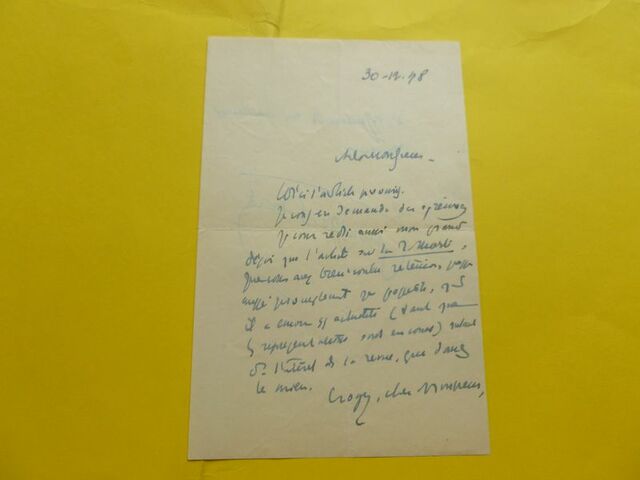 30-12-48
cher Monsieur -
Voici l'article promis.
Je vous en demande des épreuves
Je vous redis aussi mon grand
désir que l'article sur La
que vous avez bien voulu retenir,
aussi promptement que possible,
il a encore son actualité (tant que
les représentations sont en cours) autant
de l'intérêt de la revue, que dans
le mien.
Croyez, cher Monsieur,